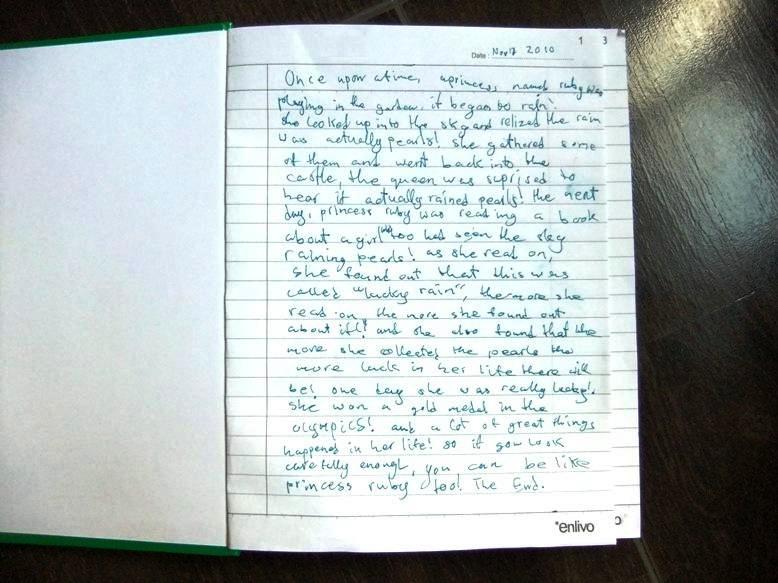 1 3
Date: Nov 17 2010
Once upon a time, a princess, named ruby was
playing in the garden, it began to rain!
she looked up into the sky and relized the rain
was actually pearls! she gathered some
of them and went back into the
castle, the queen was suprised to
hear it actually rained pearls! the next
day, princess ruby was reading a book
about a girl who too had seen the sky
raining pearls! as she read on,
she found out that this was
called "lucky rain", the more she
read on the more she found out
about it! and she also found that the
more she collected the pearls the
more luck in her life there will
be! one day she was really lucky!
she won a gold medal in the
olympics! and a lot of great things
happened in her life! so if you look
carefully enough, you can be like
princess ruby too! The End.
enlivo